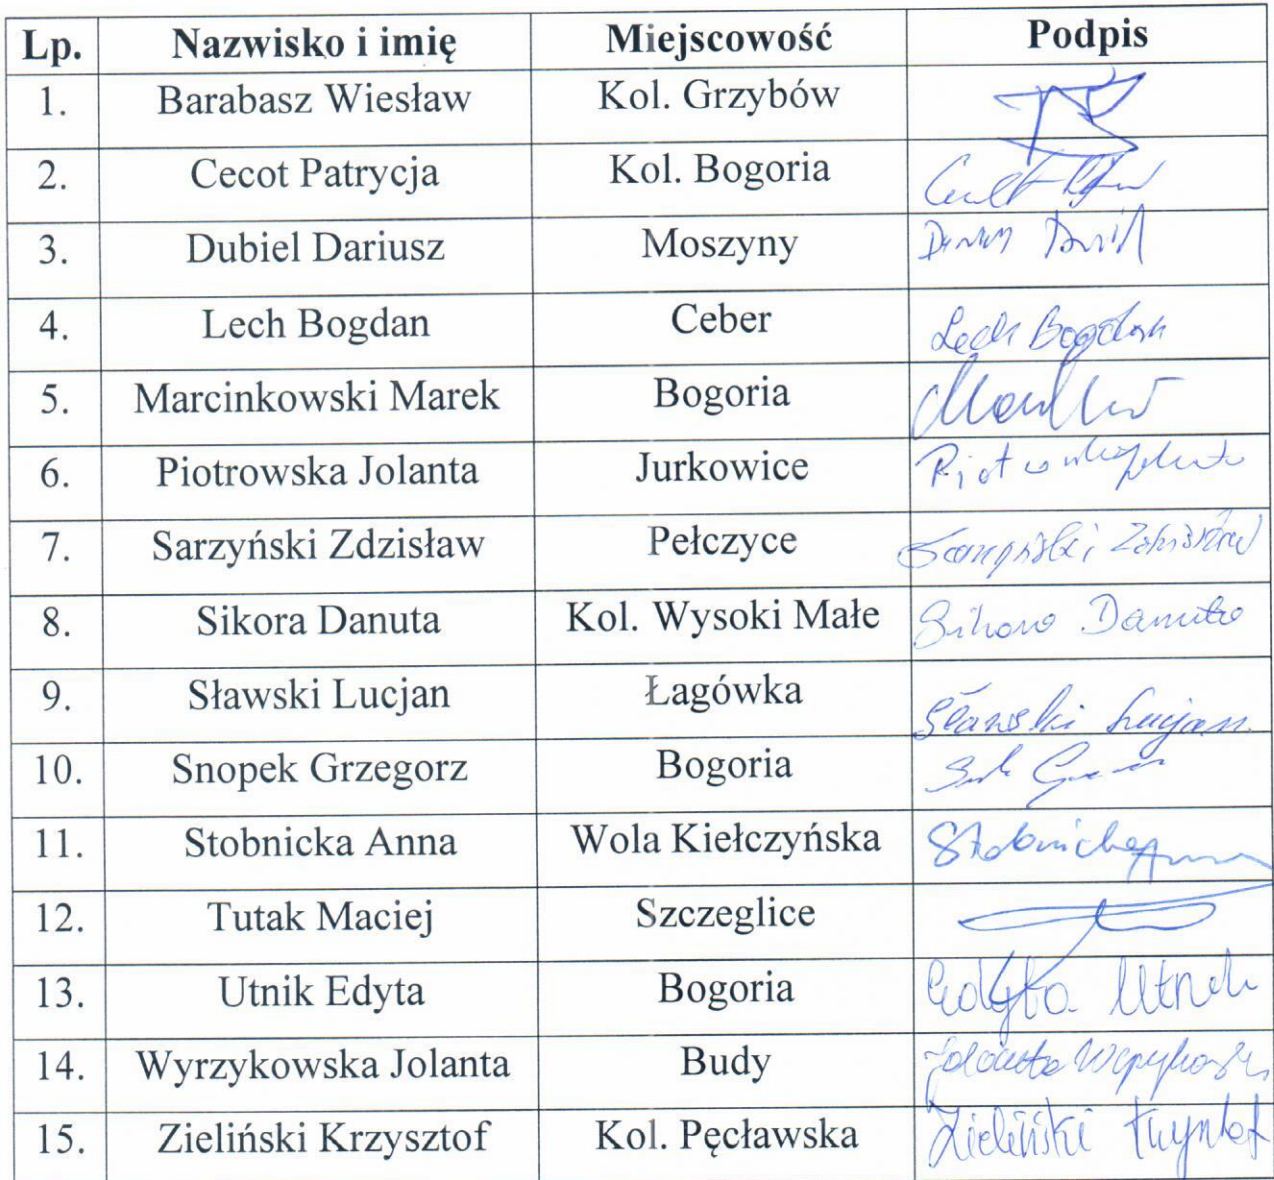 Lp. Nazwisko i imię Miejscowość Podpis
1. Barabasz Wiesław Kol. Grzybów
2. Cecot Patrycja Kol. Bogoria
3. Dubiel Dariusz Moszyny
4. Lech Bogdan Ceber Lech Bogdan
5. Marcinkowski Marek Bogoria
6. Piotrowska Jolanta Jurkowice
7. Sarzyński Zdzisław Pełczyce
8. Sikora Danuta Kol. Wysoki Małe Sikora Danuta
9. Sławski Lucjan Łagówka Sławski Lucjan
10. Snopek Grzegorz Bogoria
11. Stobnicka Anna Wola Kiełczyńska Stobnicka Anna
12. Tutak Maciej Szczeglice
13. Utnik Edyta Bogoria Edyta Utnik
14. Wyrzykowska Jolanta Budy Jolanta
15. Zieliński Krzysztof Kol. Pęcławska Zieliński